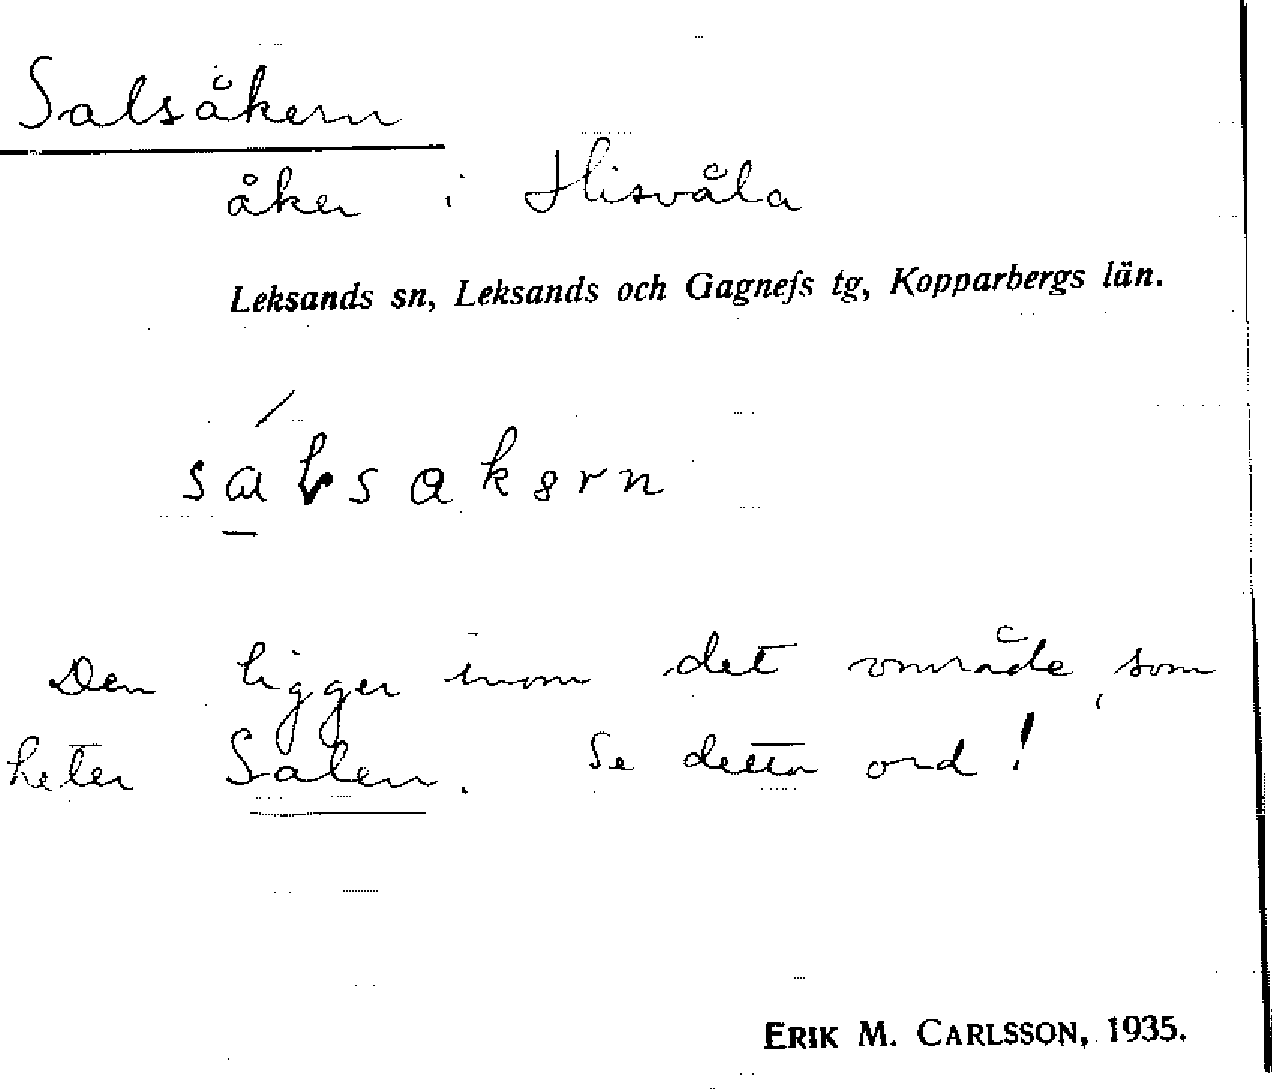 Salsåkern
åker i Hisvåla
Leksands sn, Leksands och Gagnefs tg, Kopparbergs län.
Den ligger inom det område, som
heter Salen. Se detta ord!
ERIK M. CARLSSON, 1935.